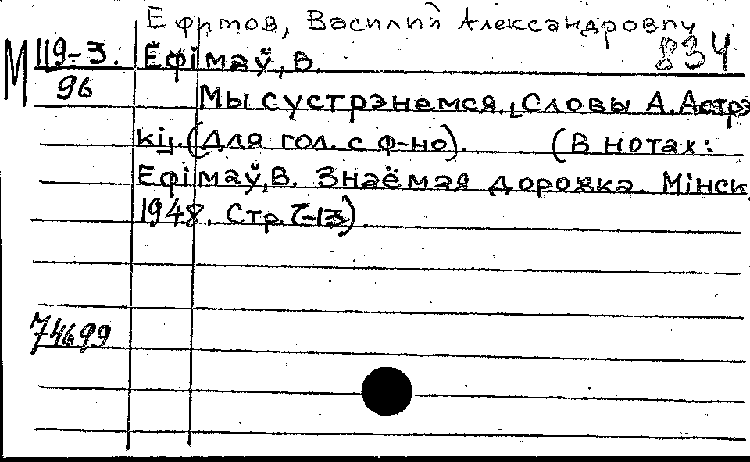 Ефимов, Василий Александрович
834
М 119-3. Ефімаў, В.
96
Мы сустрэнемся. Словы А. Астрэ
кі,. (Для гол. с ф-но). (В нотах:
Ефімаў, В. Знаёмая дорожка. Мінск,
1948. Стр. 7-13).
74699